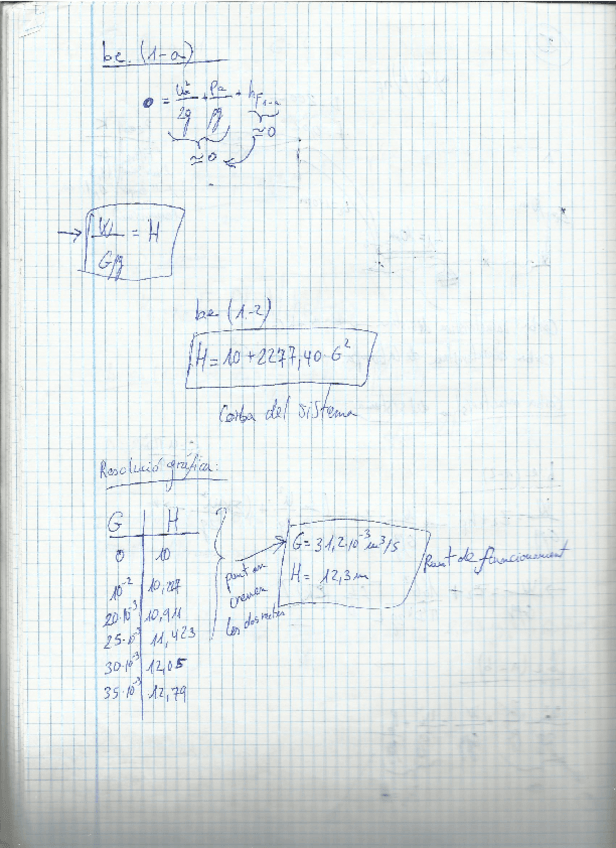 be. (1-a)
0 = ua²/2g + Pa/ρg + hF1-a
≃0
≃0
→ W/Gρg = H
be (1-2)
H = 10 + 2277,40·G²
Corba del sistema
Resolució gràfica:
G H
0 10
10⁻² 10,227
20·10⁻³ 10,911
25·10⁻³ 11,423
30·10⁻³ 12,05
35·10⁻³ 12,79
punt on
creuen
les dos
G = 31,2·10⁻³ m³/s
H = 12,3 m
Punt de funcionament